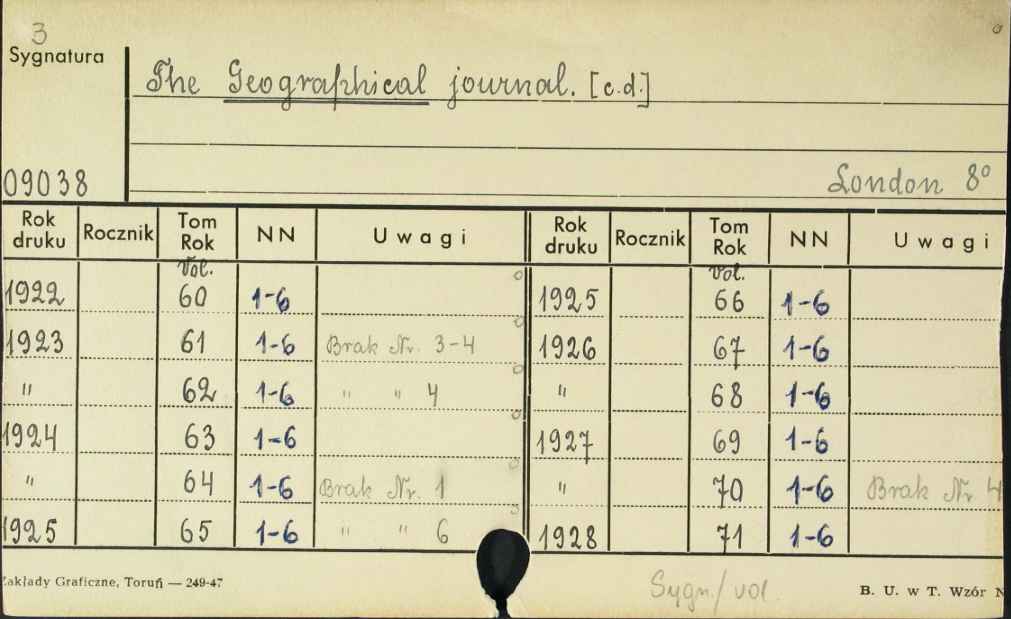 3
Sygnatura
The Geographical journal. [c.d.]
09038
London 8°
Rok druku Rocznik Tom Rok NN Uwagi Rok druku Rocznik Tom Rok NN Uwagi
Vol. Vol.
1922 60 1-6 1925 66 1-6
1923 61 1-6 Brak Nr. 3-4 1926 67 1-6
" 62 1-6 " " 4 " 68 1-6
1924 63 1-6 1927 69 1-6
" 64 1-6 Brak Nr. 1 " 70 1-6 Brak Nr 4
1925 65 1-6 " " 6 1928 71 1-6
Zakłady Graficzne, Toruń — 249-47
Sygn/ vol
B. U. w T. Wzór N